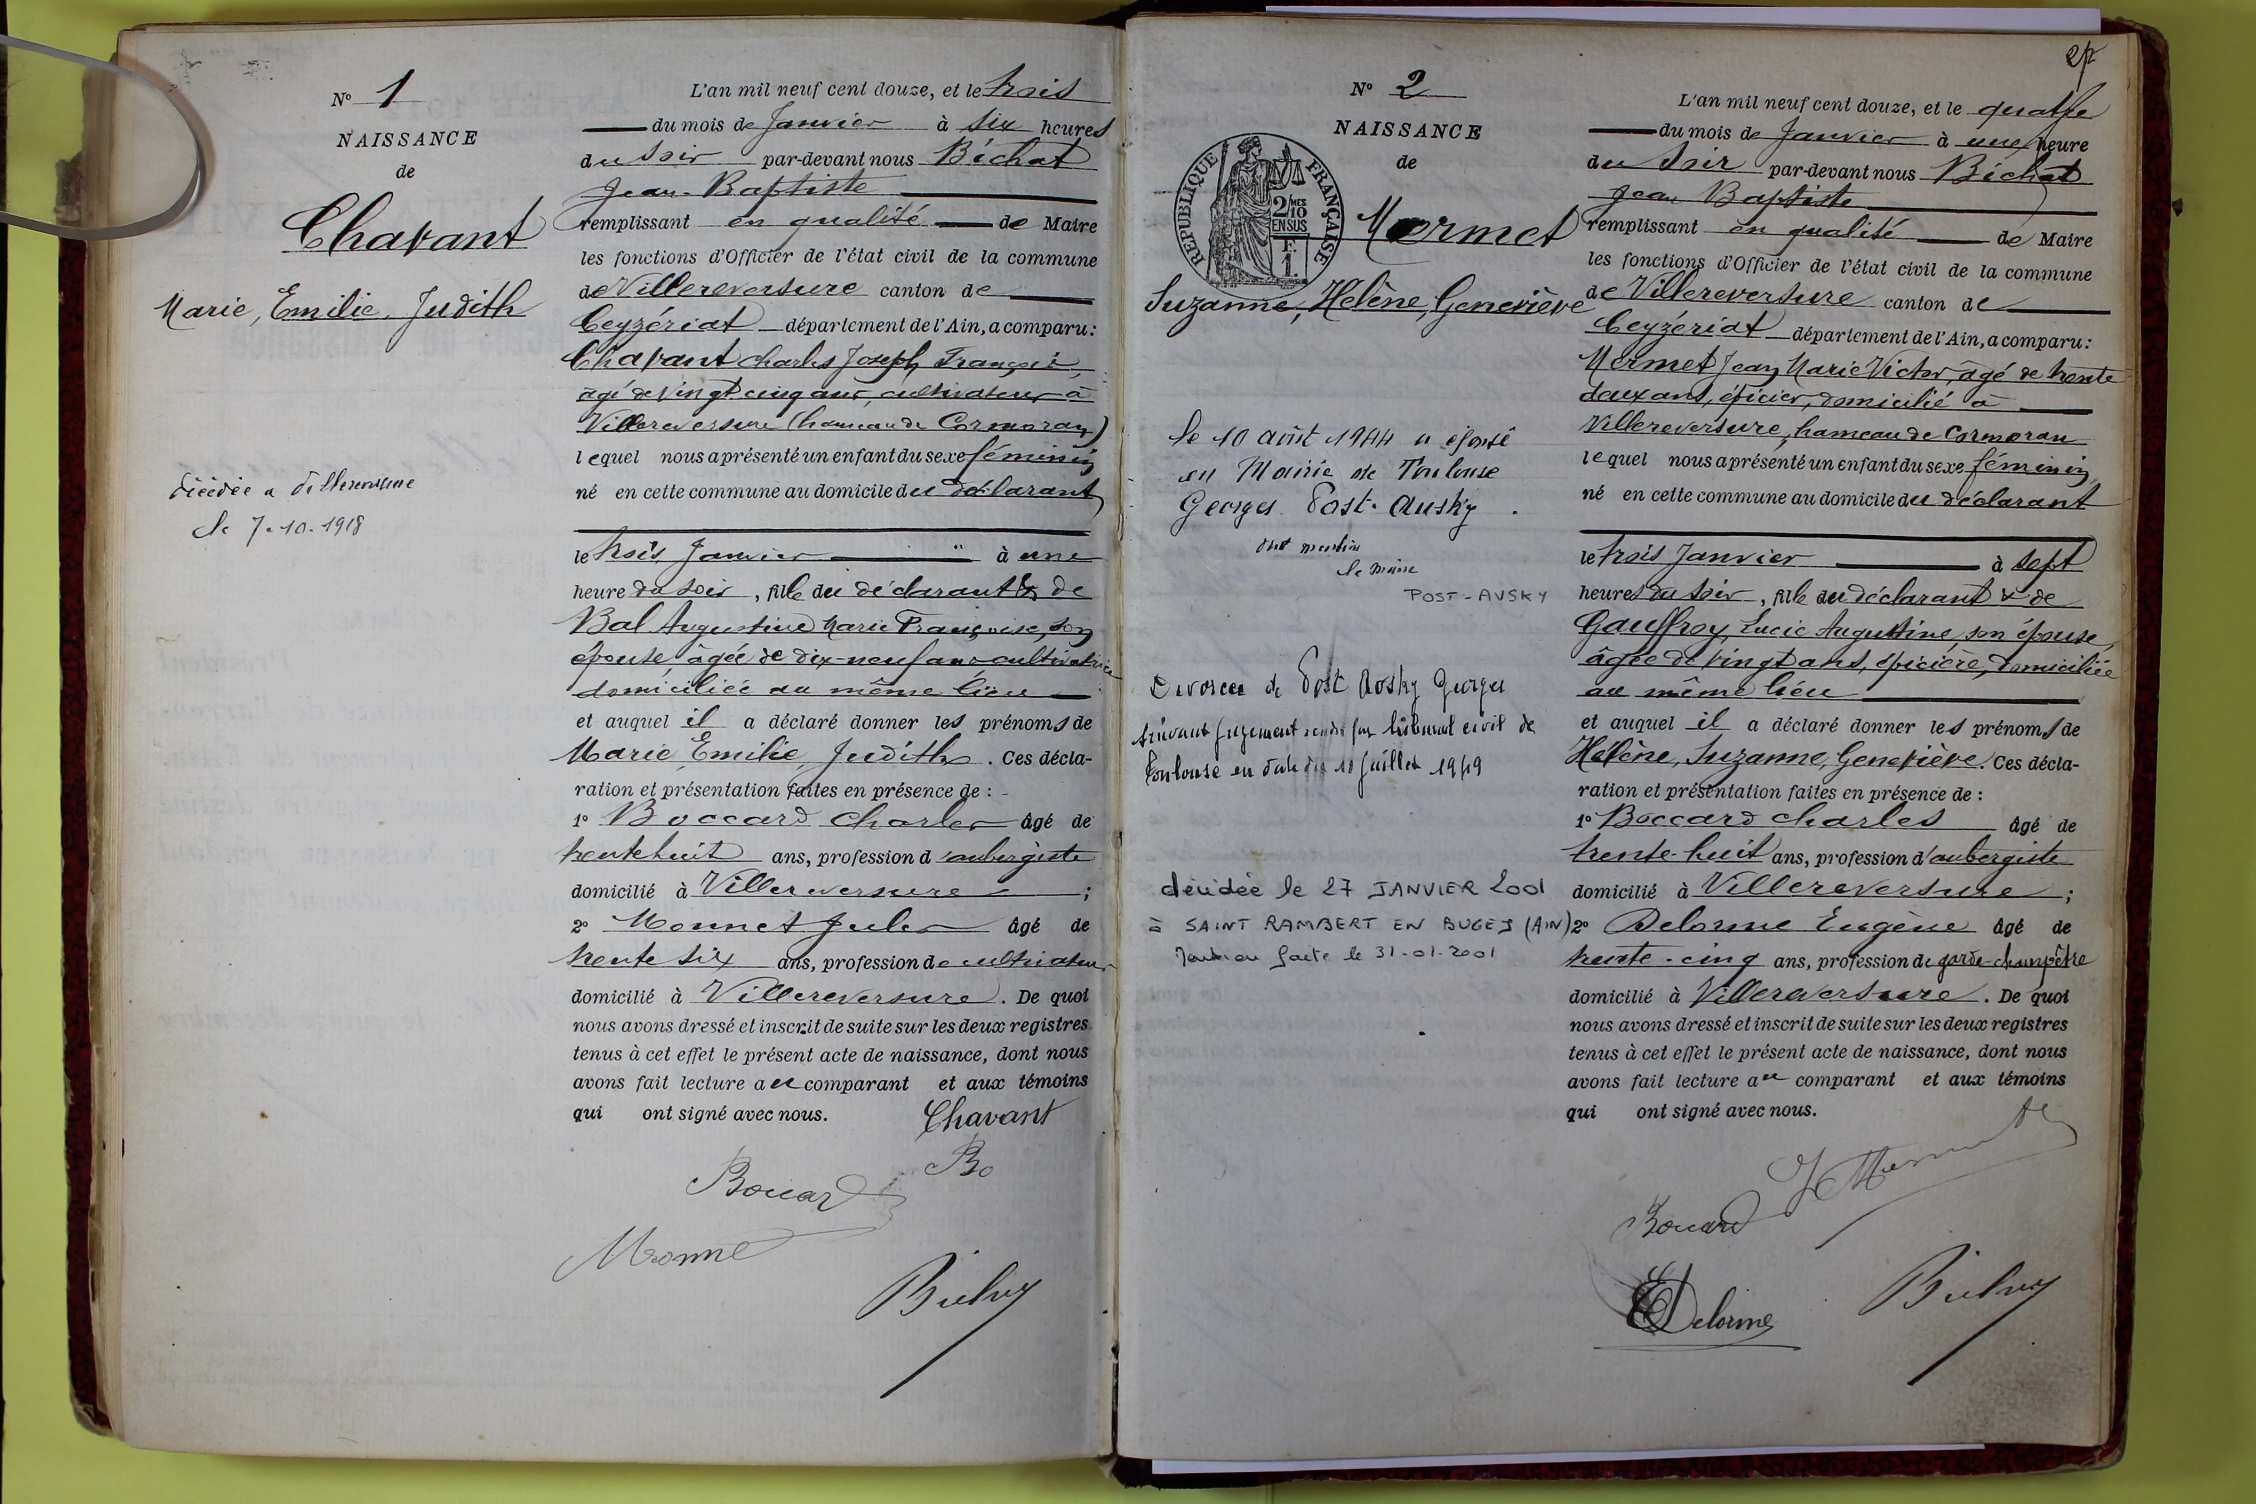 N° 1
NAISSANCE
de
Chavant
Marie, Emilie, Judith
décédée a Villereversure
le 7.10.1918
L'an mil neuf cent douze, et le trois
du mois de Janvier à six heures
du soir par-devant nous Béchat
Jean-Baptiste
remplissant en qualité de Maire
les fonctions d'Officier de l'état civil de la commune
de Villereversure canton de
Ceyzériat département de l'Ain, a comparu:
Chavant Charles Joseph François,
âgé de vingt cinq ans, cultivateur à
Villereversure (hameau de Cormoran)
lequel nous a présenté un enfant du sexe féminin
né en cette commune au domicile du déclarant
le trois Janvier " à une
heure du soir, fille du déclarant & de
Bal Augustine Marie Françoise, son
épouse, âgée de dix-neuf ans cultivatrice
domiciliée au même lieu
et auquel il a déclaré donner les prénoms de
Marie, Emilie, Judith. Ces décla-
ration et présentation faites en présence de :
1° Boccard Charles âgé de
trente huit ans, profession d'aubergiste
domicilié à Villereversure ;
2° Monnet Jules âgé de
trente six ans, profession de cultivateur
domicilié à Villereversure. De quoi
nous avons dressé et inscrit de suite sur les deux registres
tenus à cet effet le présent acte de naissance, dont nous
avons fait lecture au comparant et aux témoins
qui ont signé avec nous.
Chavant
Bo
Boccard
Monne
2
N° 2
NAISSANCE
de
REPUBLIQUE FRANÇAISE
2/10 MES
EN SUS
F.
1.
Mermet
Suzanne, Helène, Geneviève
le 10 août 1944 a épousé
en Mairie de Toulouse
Georges Post-Ausky.
dont mention
le Maire
POST-AVSKY
Divorcée de Post Avsky Georges
suivant jugement rendu par tribunal civil de
Toulouse en date du 18 juillet 1949
décédée le 27 JANVIER 2001
à SAINT RAMBERT EN BUGEY (AIN)
Mention faite le 31-01-2001
L'an mil neuf cent douze, et le quatre
du mois de Janvier à une heure
du soir par-devant nous Béchat
Jean Baptiste
remplissant en qualité de Maire
les fonctions d'Officier de l'état civil de la commune
de Villereversure canton de
Ceyzériat département de l'Ain, a comparu:
Mermet Jean Marie Victor, âgé de trente
deux ans, épicier, domicilié à
Villereversure, hameau de Cormoran
lequel nous a présenté un enfant du sexe féminin
né en cette commune au domicile du déclarant
le trois Janvier à sept
heures du soir, fille du déclarant & de
Gauffroy, Lucie Augustine, son épouse,
âgée de vingt ans, épicière, domiciliée
au même lieu
et auquel il a déclaré donner les prénoms de
Helène, Suzanne, Geneviève. Ces décla-
ration et présentation faites en présence de :
1° Boccard Charles âgé de
trente-huit ans, profession d'aubergiste
domicilié à Villereversure ;
2° Delorme Eugène âgé de
trente-cinq ans, profession de garde-champêtre
domicilié à Villereversure. De quoi
nous avons dressé et inscrit de suite sur les deux registres
tenus à cet effet le présent acte de naissance, dont nous
avons fait lecture au comparant et aux témoins
qui ont signé avec nous.
Boccard
EDelorme